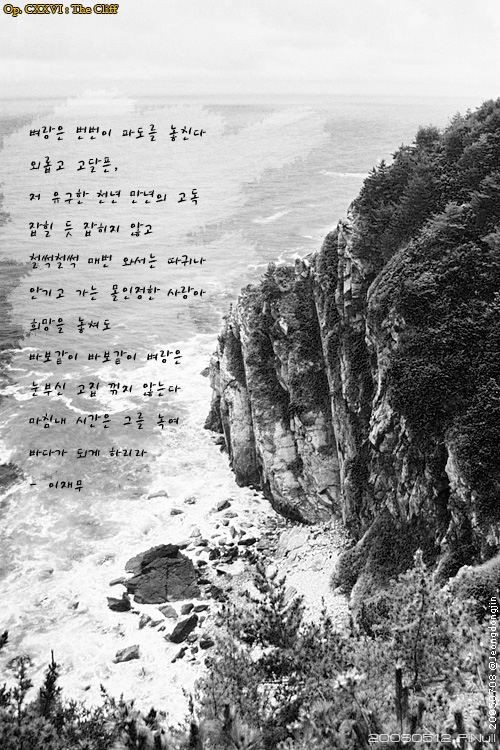 Op. CXXVI : The Cliff
벼랑은 번번이 파도를 놓친다
외롭고 고달픈,
저 유구한 천년 만년의 고독
잡힐 듯 잡히지 않고
철썩철썩 매번 와서는 따귀나
안기고 가는 몰인정한 사랑아
희망을 놓쳐도
바보같이 바보같이 벼랑은
눈부신 고집 꺾지 않는다
마침내 시간은 그를 녹여
바다가 되게 하리라
- 이재무
20050708 @Jeongdongjin